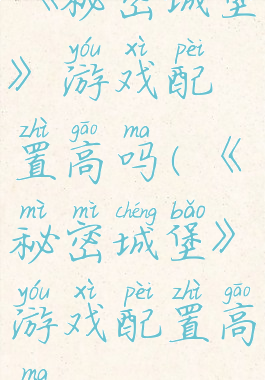 《秘密城堡
yóu xì pèi
》游戏配
zhì gāo ma
置高吗(《
mì mì chéng bǎo
秘密城堡》
yóu xì pèi zhì gāo
游戏配置高
ma